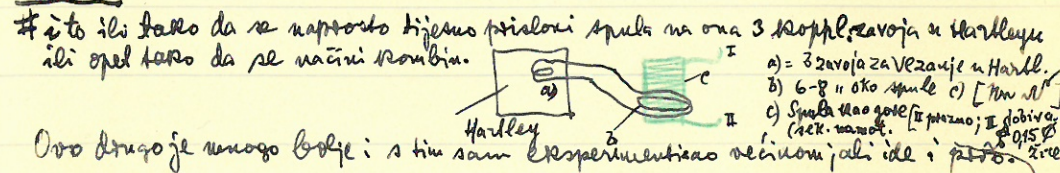 # i to ili tako da se naprosto tijesno prisloni spula na ona 3 koppl. zavoja u Hartleyu
ili opet tako da se načini kombin.
a)
Hartley
b
c
I
II
a) = 3 zavoja za vezanje u Hartl.
b) 6-8 " oko spule c)
c) Spula kao gore [II prazno; II dobiva
(sek. namot. 0,15 žice
Ovo drugo je mnogo bolje i s tim sam eksperimentirao većinom, ali ide i